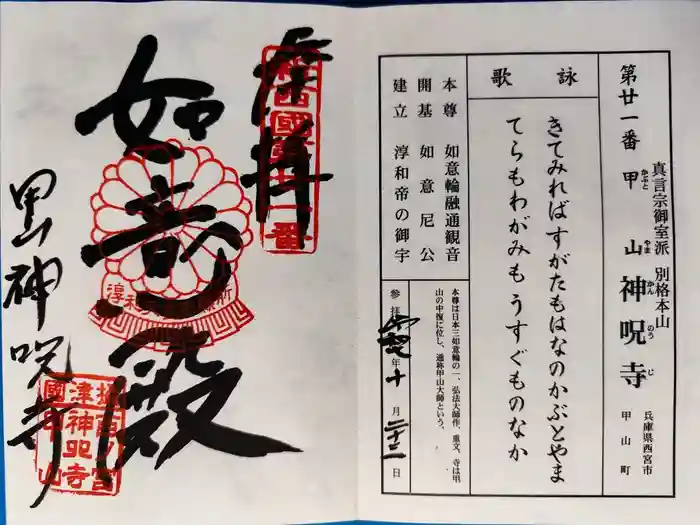 第廿一番 甲山 神呪寺
かぶと やま かん のう じ
真言宗御室派 別格本山
兵庫県西宮市
甲山町
詠歌
きてみればすがたもはなのかぶとやま
てらもわがみもうすぐものなか
本尊 如意輪融通観音
開基 如意尼公
建立 淳和帝の御宇
本尊は日本三如意輪の一、弘法大師作、重文、寺は甲
山の中復に位し、通称甲山大師という。
参拝 年十月二十二日
奉拝
如意殿
神呪寺